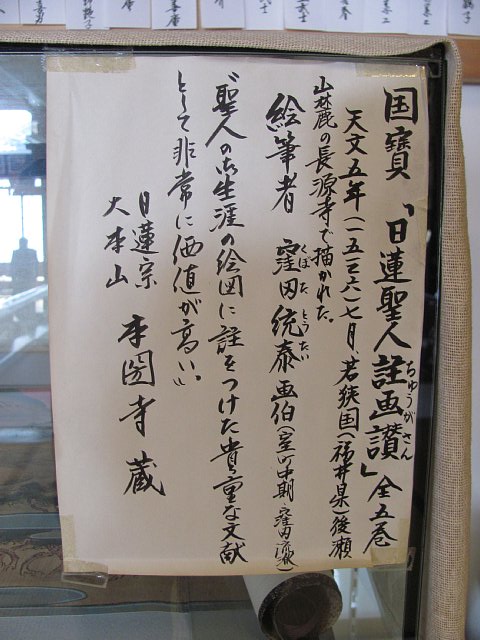 国寳「日蓮聖人註画讃」全五巻
ちゅうがさん
天文五年(一五三六)七月、若狭国(福井県)後瀬
山麓の長源寺で描かれた。
絵筆者 窪田統泰画伯(室町中期・窪田流派)
くぼたとうたい
〝聖人の御生涯の絵図に註をつけた貴重な文献
として非常に価値が高い〟
日蓮宗
大本山 本圀寺蔵